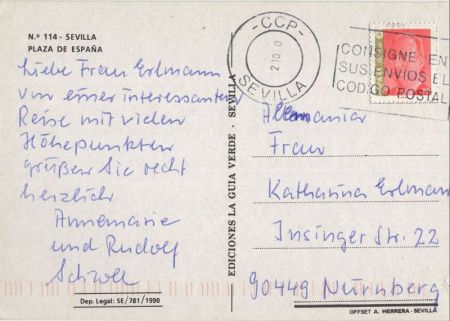 N.º 114 - SEVILLA
PLAZA DE ESPAÑA
Liebe Frau Erlmann
von einer interessanten
Reise mit vielen
Höhepunkten
grüßen Sie recht
herzlich
Annemarie
und Rudolf
Dep. Legal: SE/781/1990
EDICIONES LA GUIA VERDE - SEVILLA
-CCP-
SEVILLA
CONSIGNE EN
SUS ENVIOS EL
CODIGO POSTAL
Frau
Katharina Erlmann
Insinger Str. 22
90449 Nürnberg
OFFSET A. HERRERA - SEVILLA